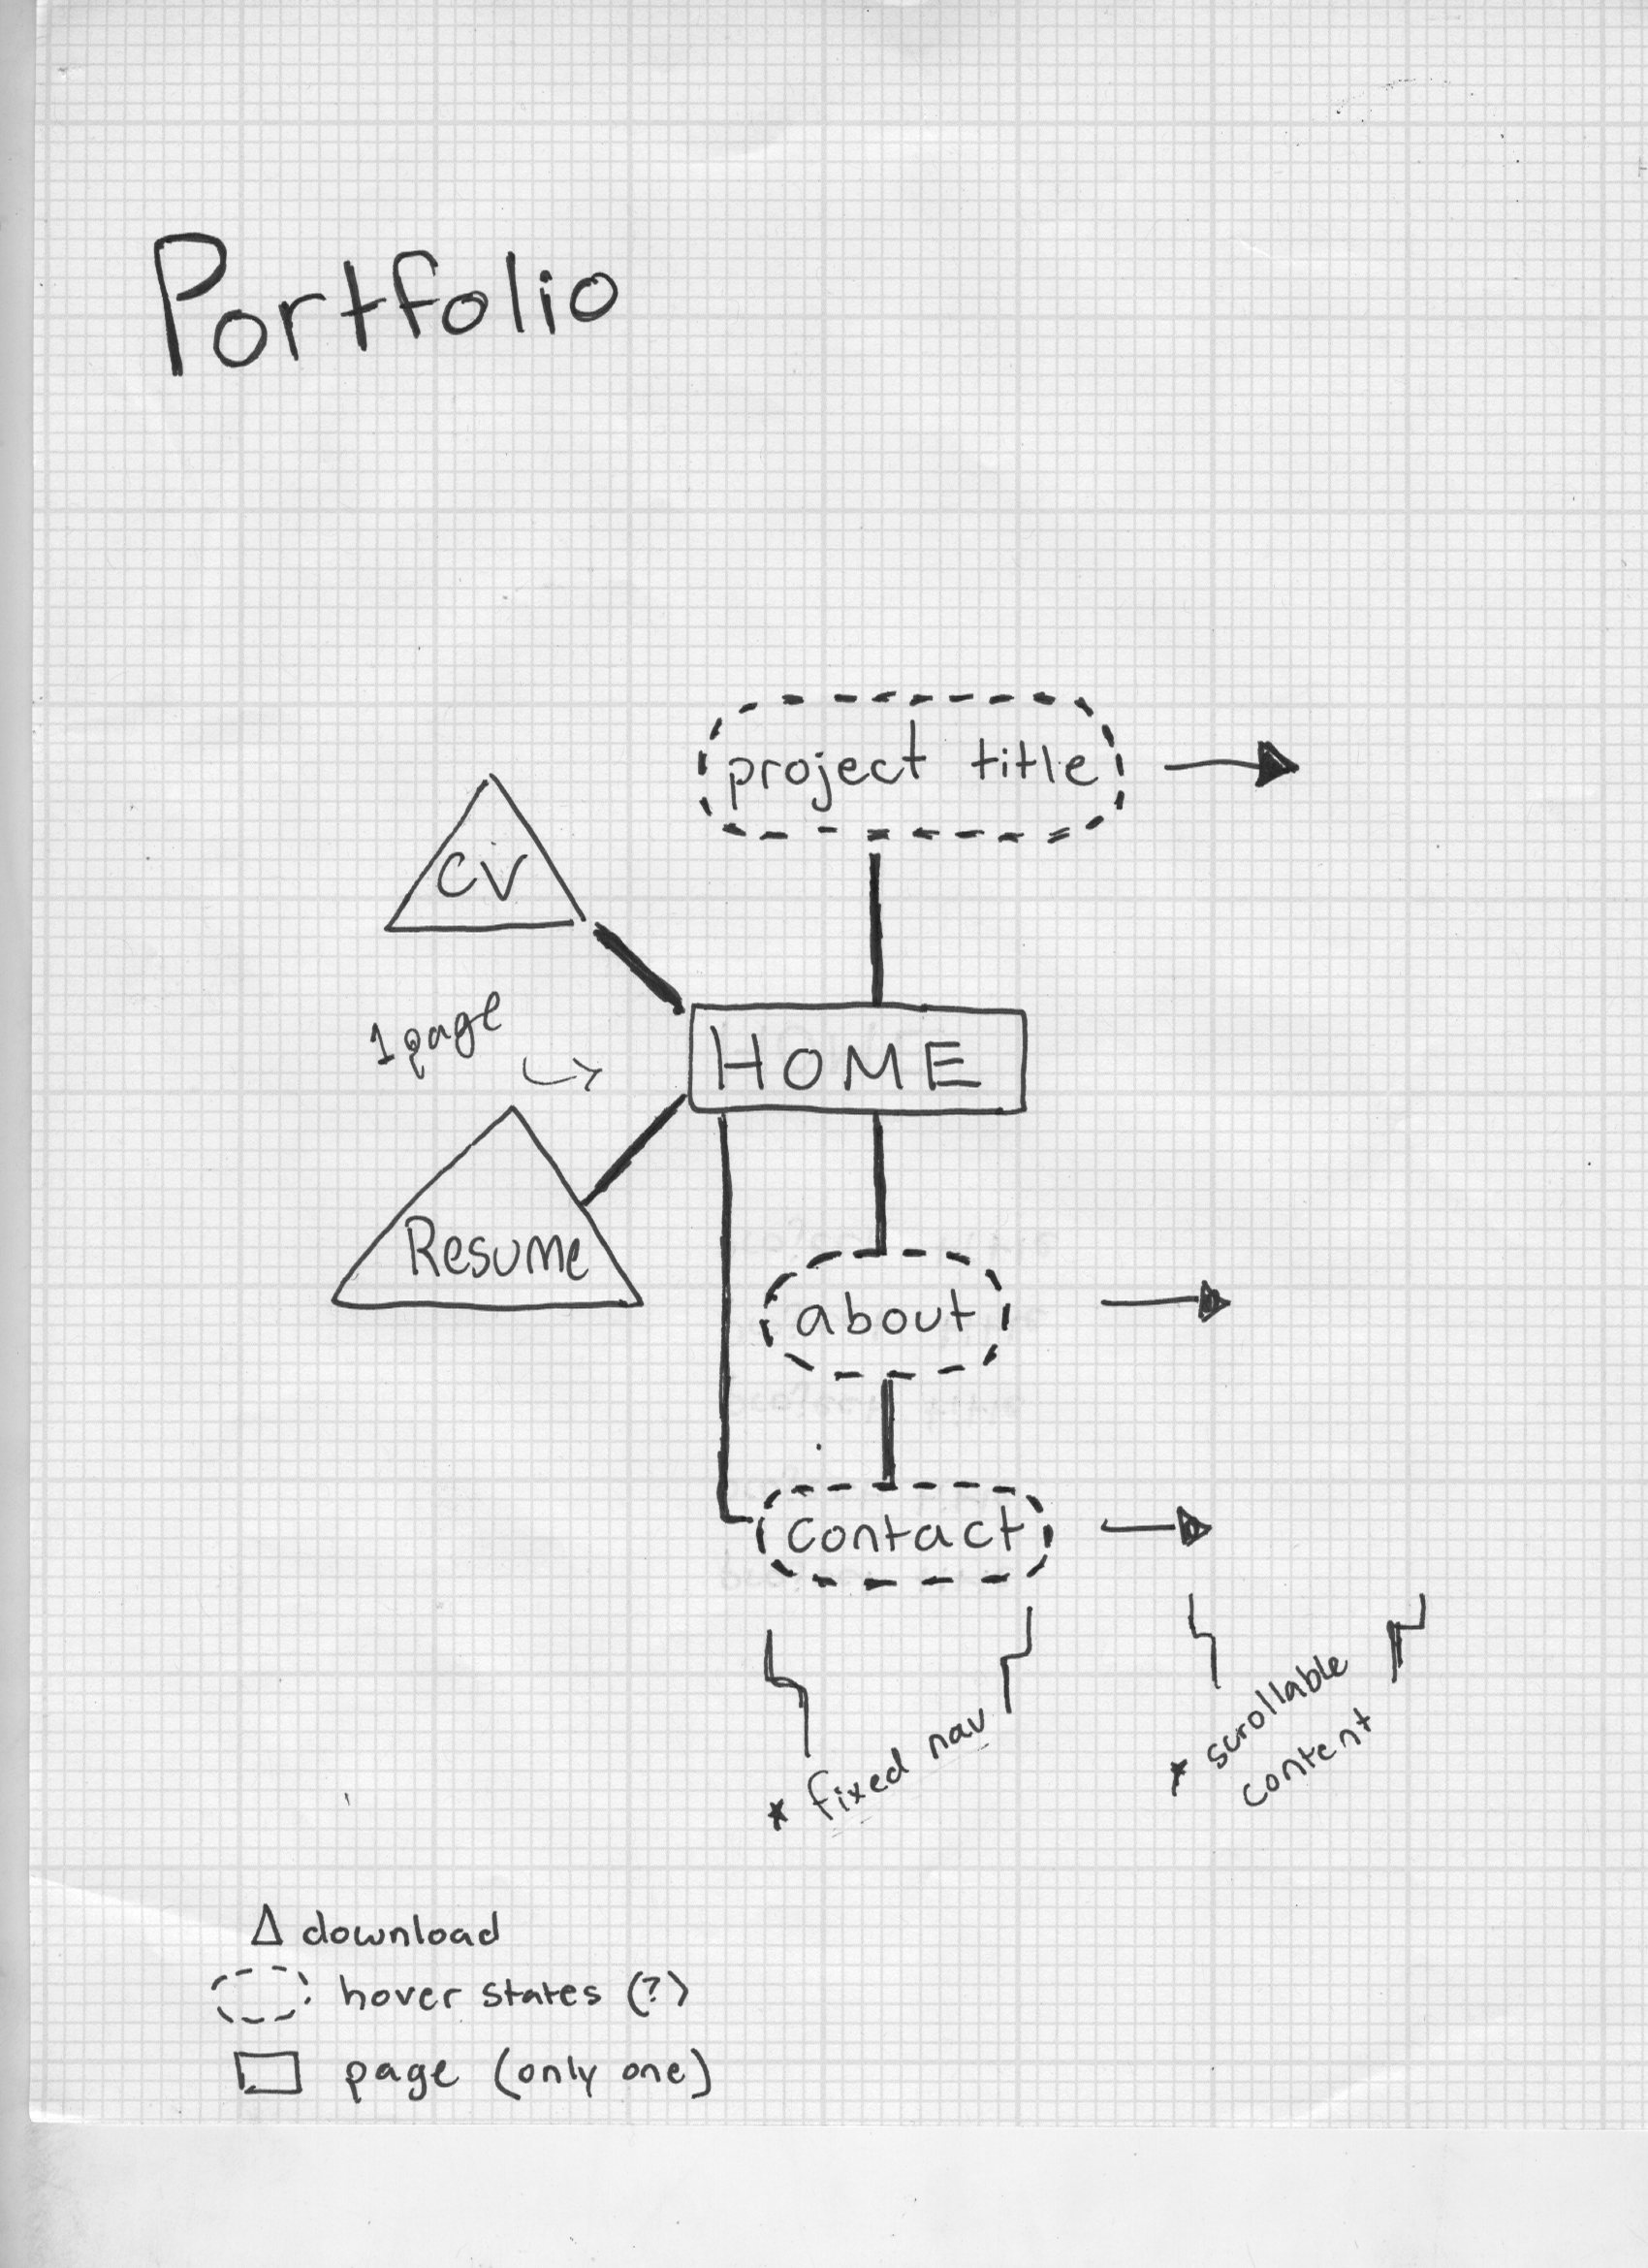 Portfolio
project title
CV
1 page
HOME
Resume
about
contact
* fixed nav
* scrollable
content
Δ download
hover states (?)
page (only one)